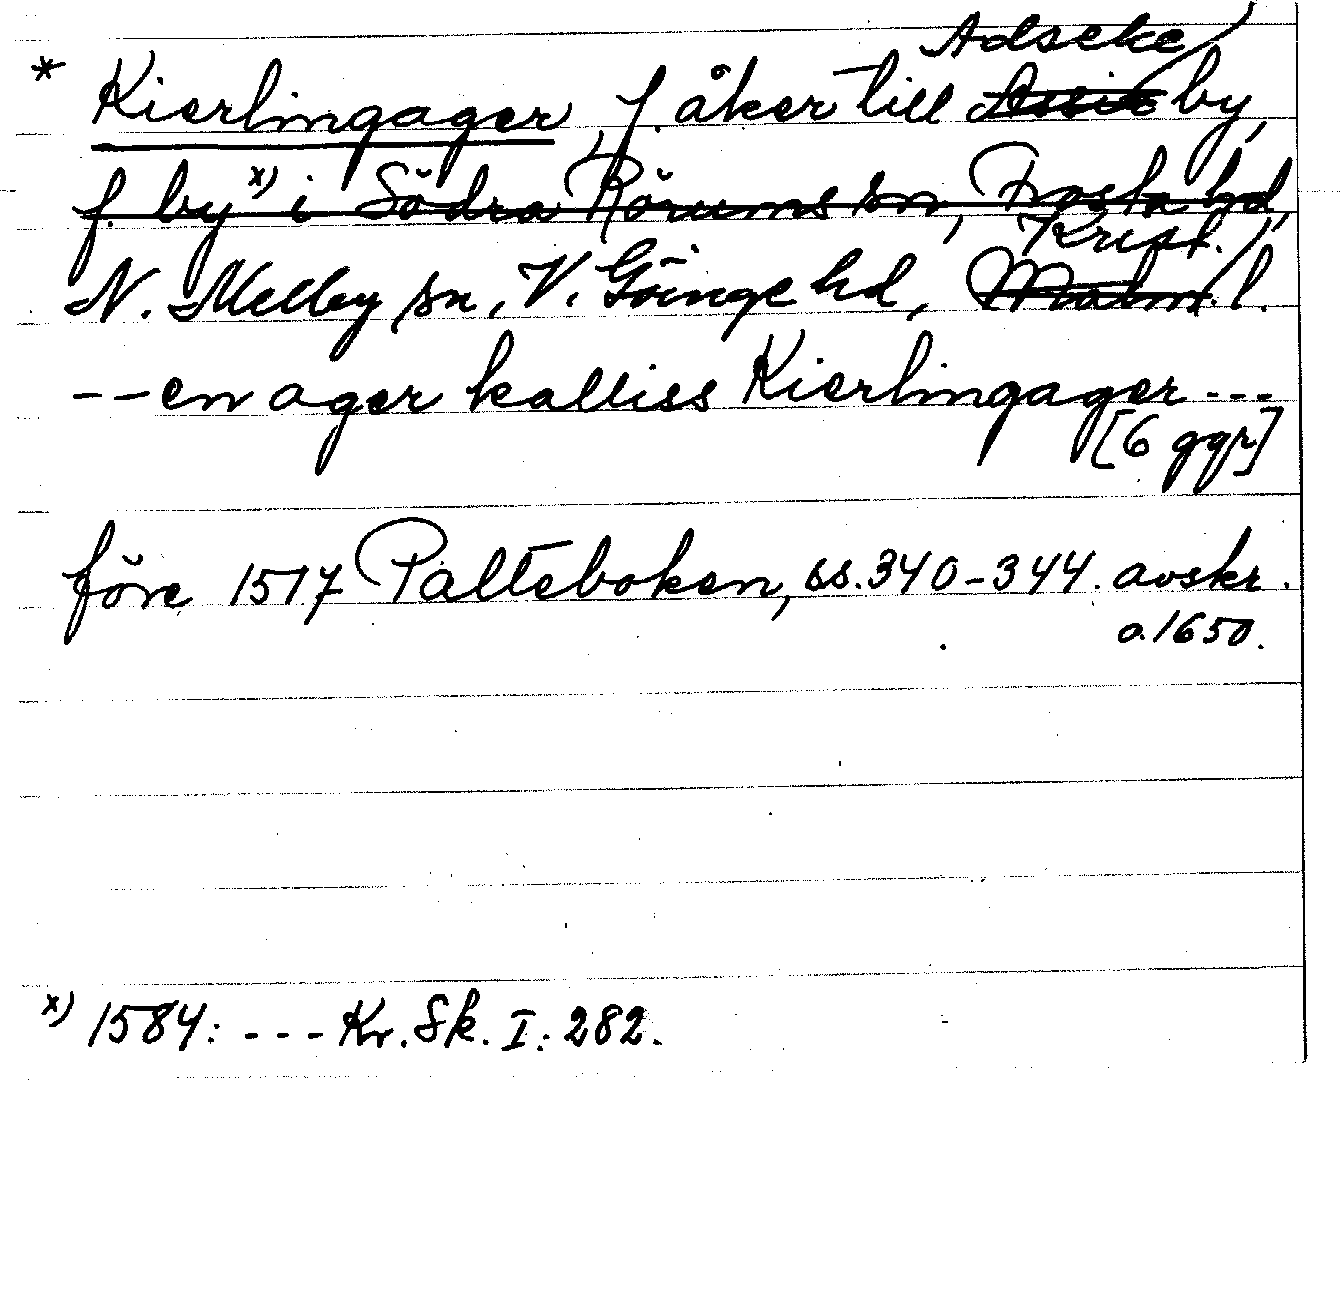 Adseke
* Kierlingager, f. åker till Assie by,
f. by x) i Södra Rörums sn, Frosta hd,
Krist.
N. Melby sn, V. Göinge hd, Malm. l.
-- en ager kalliss Kierlingager ---
[6 ggr]
före 1517 Palteboken, ss. 340-344. avskr.
a. 1650.
x) 1584: --- Kr. Sk. I: 282.